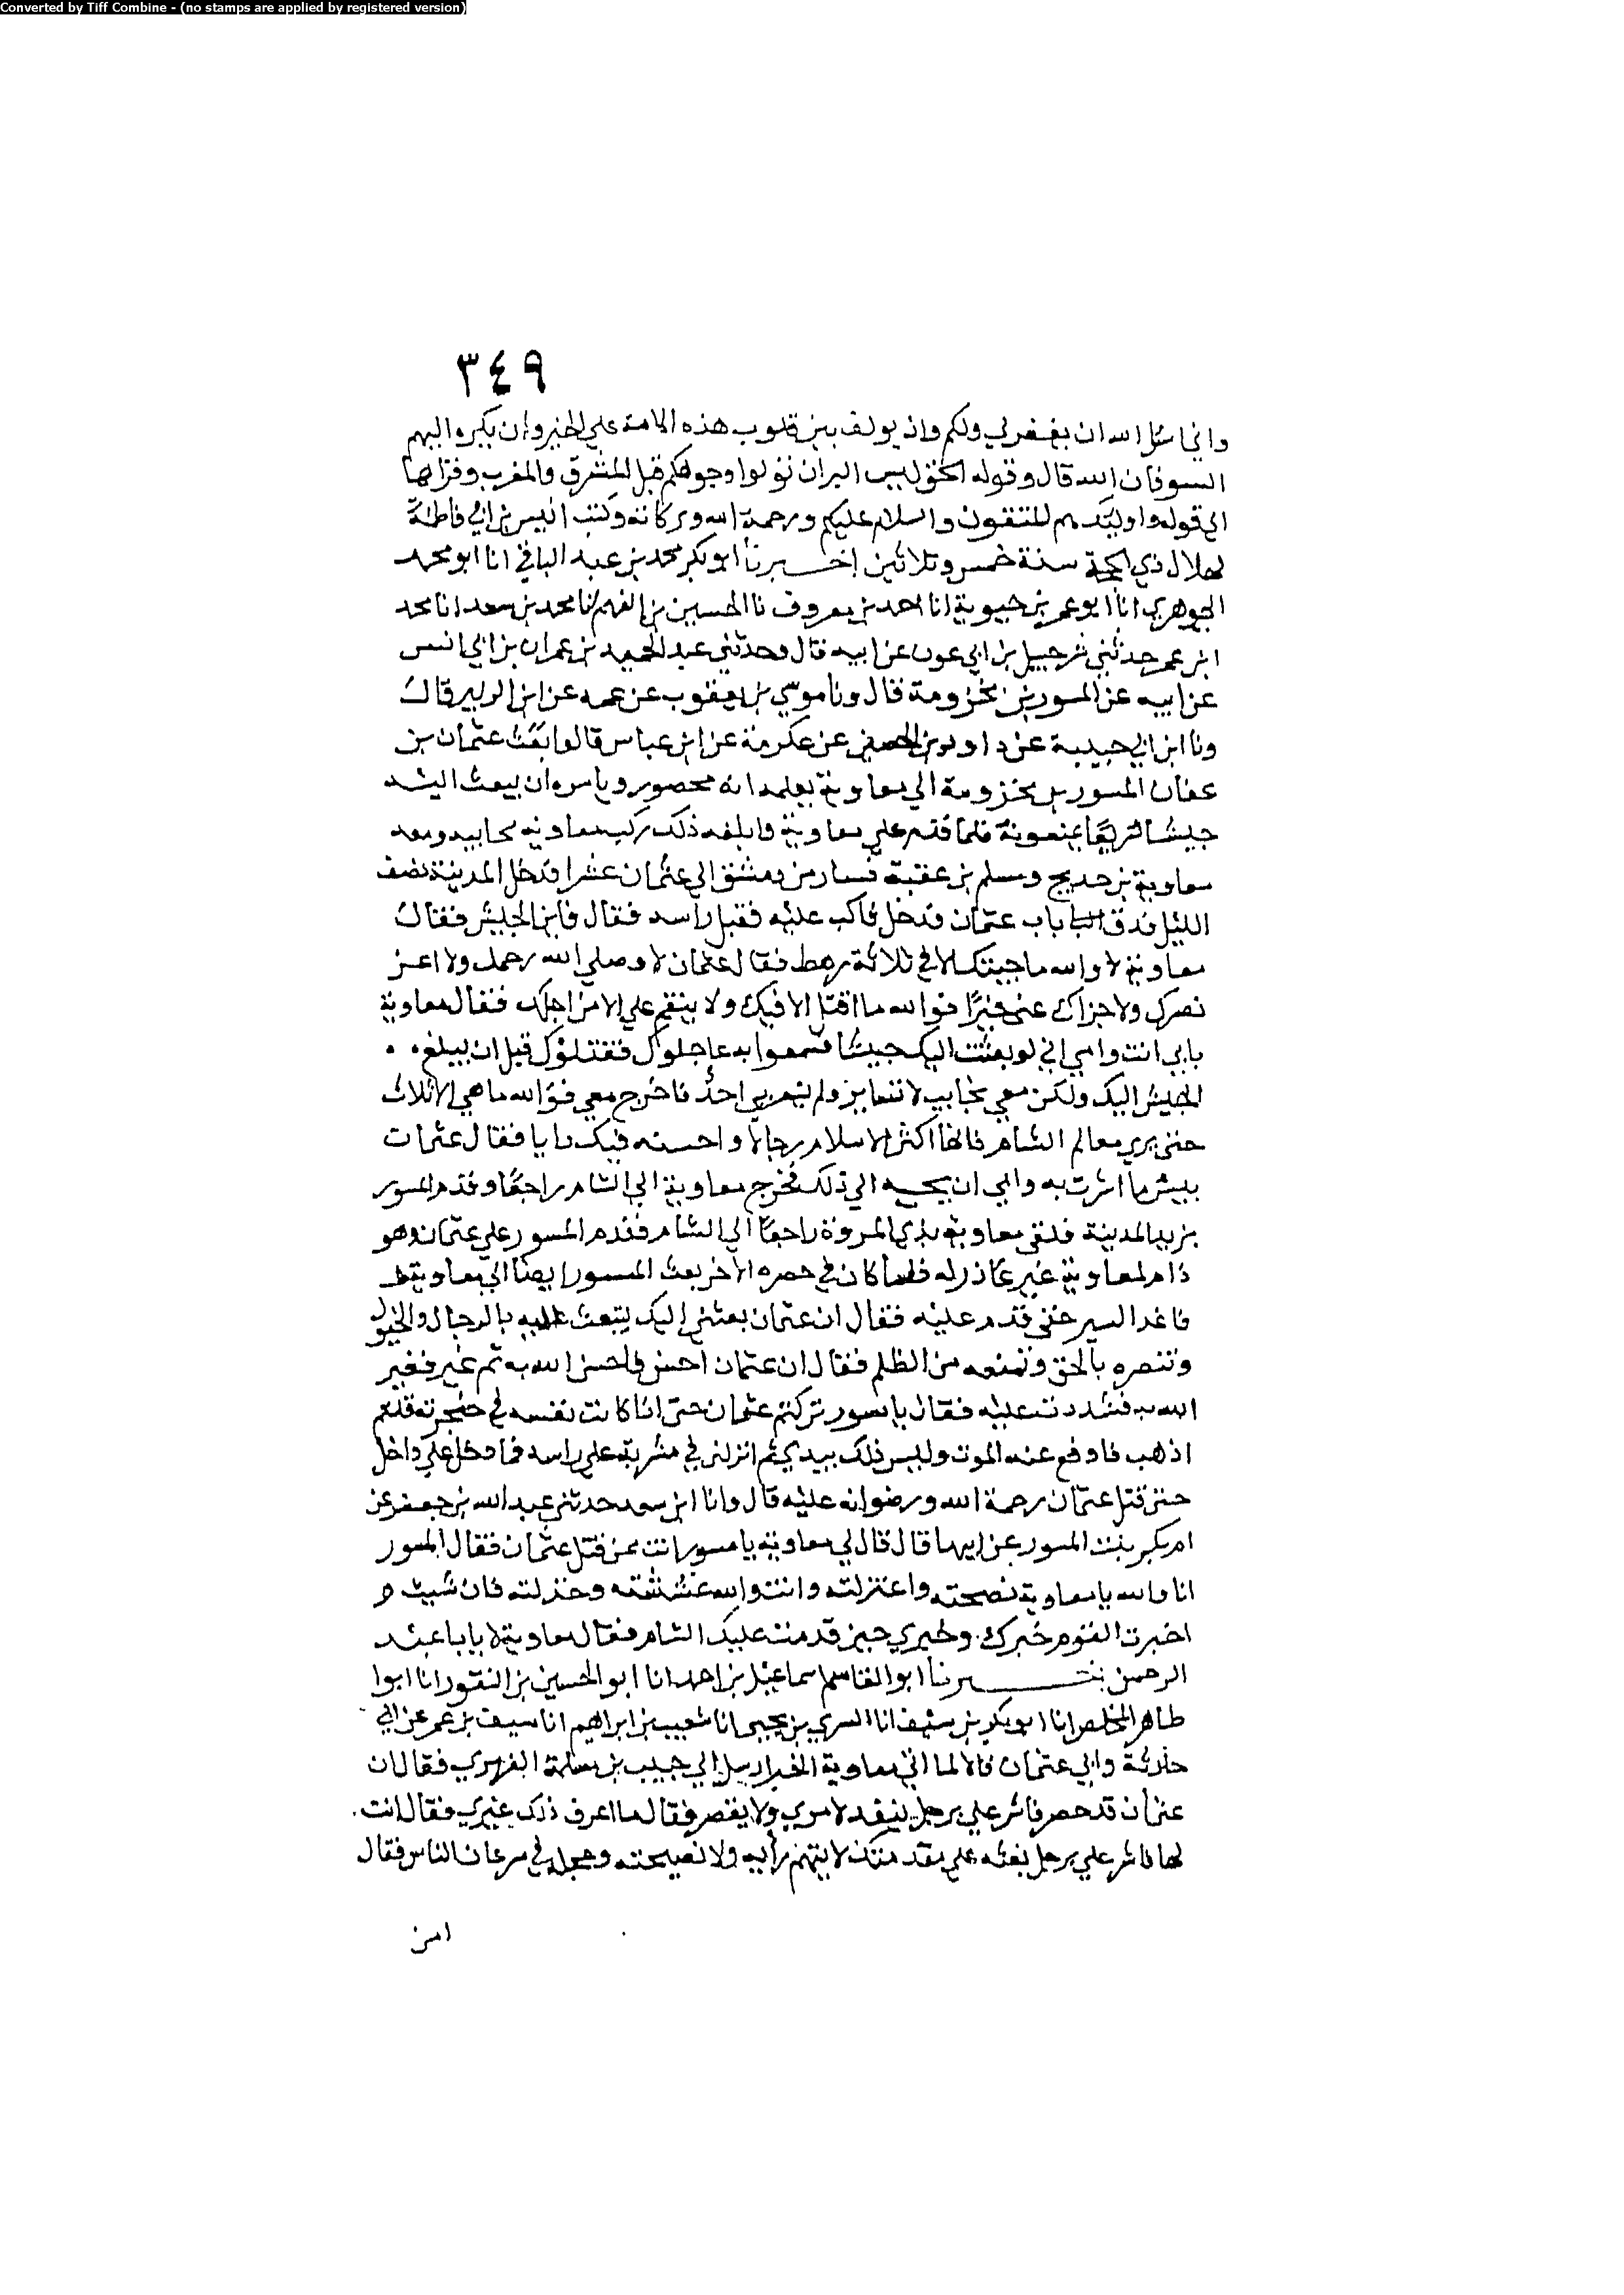 Converted by Tiff Combine - (no stamps are applied by registered version)
٣٤٩
واني اسئل الله ان يغفر لي ولكم وان يولف بين قلوب هذه الامة علي الخير وان يكره اليهم
السوفان الله قال وقوله الحق ليس البر ان تولوا وجوهكم قبل المشرق والمغرب وقراها
الي قوله واوليك هم المتقون والسلام عليكم ورحمة الله وبركاته وكتب انيس بن ابي فاطمة
لهلال ذي الحجة سنة خمس وثلاثين اخبرنا ابو بكر محمد بن عبد الباقي انا ابو محمد
الجوهري انا ابو عمر بن حيوية انا احمد بن معروف نا الحسين بن الفهم نا محمد بن سعد انا محمد
ابن عمر حدثني شرحبيل بن ابي عون عن ابيه قال وحدثني عبد الحميد بن عمران بن ابي انس
عن ابيه عن المسور بن مخزومة قال ونا موسي بن يعقوب عن عمه عن ابن الزبير قال
ونا ابن ابي حبيبة عن داود بن الحصين عن عكرمة عن ابن عباس قالوا بعث عثمان بن
عفان المسور بن مخزومة الي معاوية يعلمه انه محصور ويامره ان يبعث اليه
جيشا سريعا يمنعونه فلما قدم علي معاوية وابلغه ذلك ركب معاوية نجايبه ومعه
معاوية بن حديج ومسلم بن عقبة فسار من دمشق الي عثمان عشرا فدخل المدينة نصف
الليل فدق باب عثمان فدخل فاكب عليه فقبل راسه فقال فاين الجيش فقال
معاوية لا والله ما جيتك الا في ثلاثة رهط فقال عثمان لا وصل الله رحمك ولا اعز
نصرك ولا جزاك عني خيرا فوالله ما اقتل الا فيك ولا ينقم علي الا من اجلك فقال معاوية
بابي انت وامي اني لو بعثت اليك جيشا فسمعوا به عاجلوك فقتلوك قبل ان يبلغ
الجيش اليك ولكن معي نجايب لا تساير ولم يشعر بي احد فاخرج معي فوالله ما هي الا ثلاث
حتي يري معالم الشام فانها اكثر الاسلام رجالا واحسنه فيك رايا فقال عثمان
بيس ما اشرت به وابي ان يجيبه الي ذلك فخرج معاوية الي الشام راجعا وقدم المسور
يريد المدينة فلقي معاوية بذي المروة راجعا الي الشام فقدم المسور علي عثمان وهو
ذام لمعاوية غير عاذر له فلما كان في حصره الاخر بعث المسور ايضا الي معاوية
فاغذ السير حتي قدم عليه فقال ان عثمان بعثني اليك لتبعث اليه بالرجال والخيول
وتنصره بالحق وتمنعه من الظلم فقال ان عثمان احسن فاحسن الله به ثم غير فغير
الله به فشددت عليه فقال يا مسور تركتم عثمان حتي اذا كانت نفسه في حنجرته قلتم
اذهب فادفع عنه الموت وليس ذلك بيدي ثم انزلني في مشربة علي راسه فما دخل علي داخل
حتي قتل عثمان رحمة الله ورضوانه عليه قال وانا ابن سعد حدثني عبد الله بن جعفر عن
ام بكر بنت المسور عن ابيها قال قال لي معاوية يا مسور انت ممن قتل عثمان فقال المسور
انا والله يا معاوية نصحته واعتزلته وانت والله غششته وخذلته فان شيت
اخبرت القوم خبرك وخبري حين قدمت عليك الشام فقال معاوية لا يا با عبد
الرحمن اخبرنا ابو القاسم اسماعيل بن احمد انا ابو الحسين بن النقور انا ابوا
طاهر المخلص انا ابو بكر بن سيف انا السري بن يحيي انا شعيب بن ابراهيم انا سيف بن عمر عن ابي
حارثة وابي عثمان قالا لما اتي معاوية الخبر ارسل الي حبيب بن مسلمة الفهري فقال ان
عثمان قد حصر فاشر علي برجل ينفذ لامري ولا يقصر فقال ما اعرف ذلك غيري فقال انت
لها فاشر علي برجل نبعثه علي مقدمتك لا يتهم رأيه ولا نصيحته وعجله في سرعان الناس فقال
امن